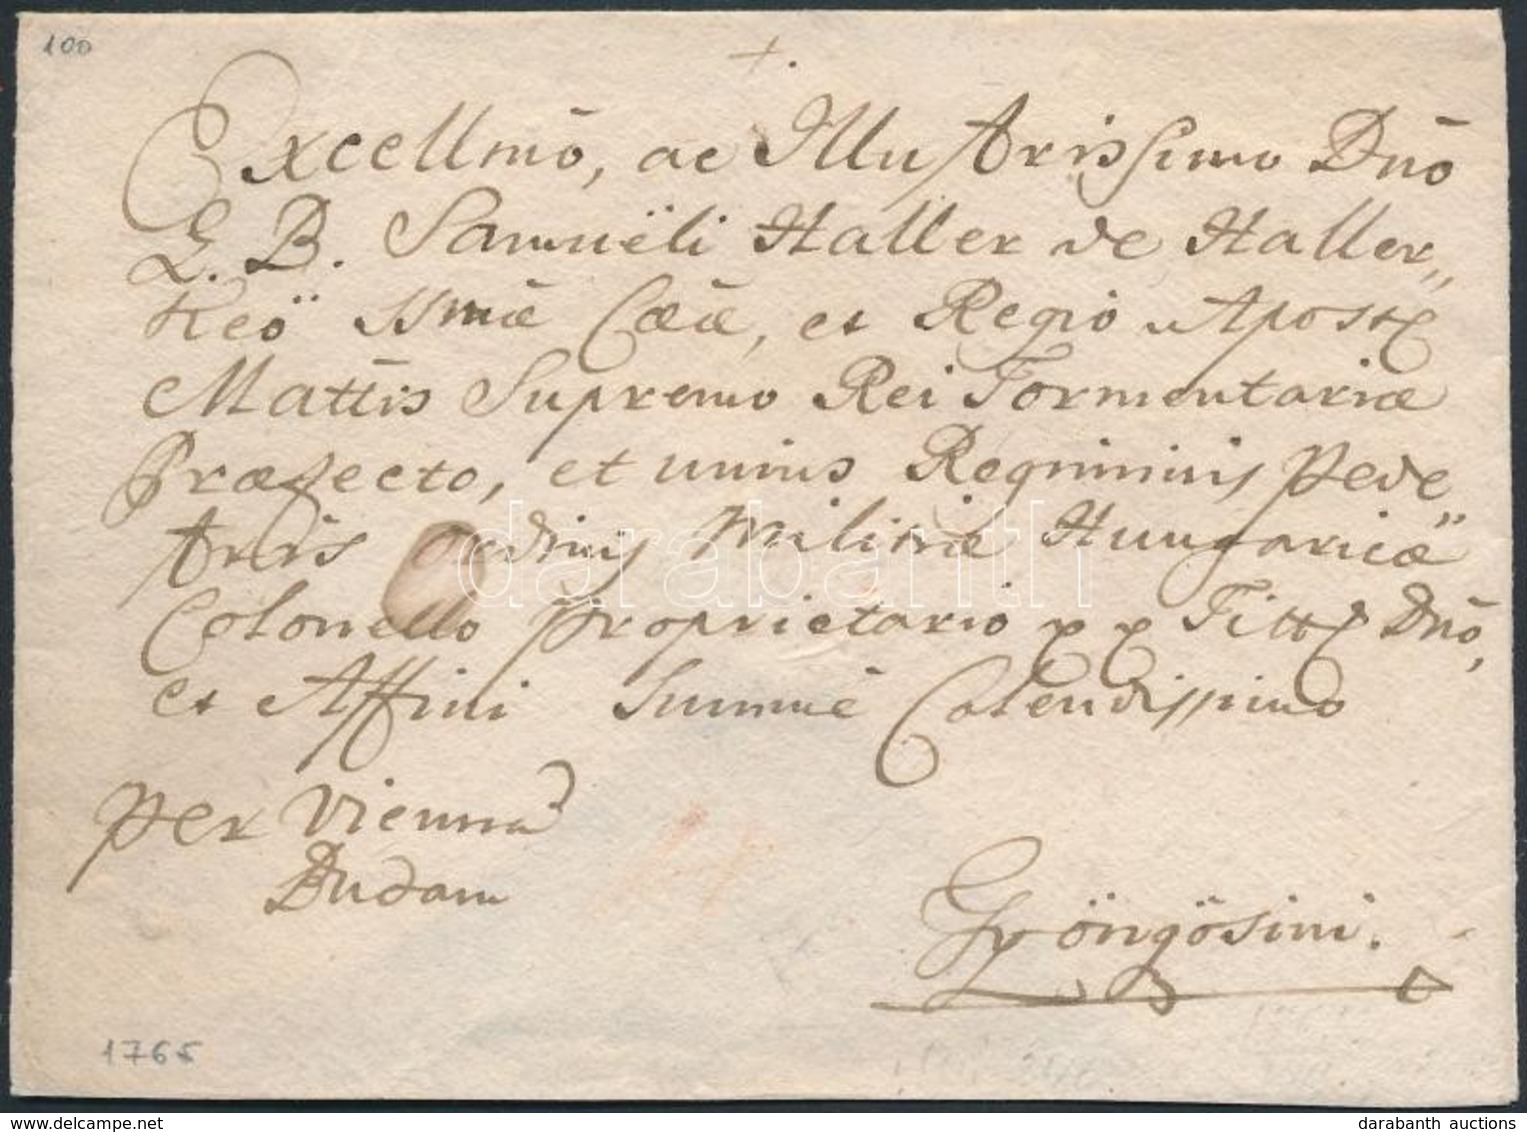 100
Excellmō, ac Illustrissimo Dnō
L. B. Samuëli Haller de Haller„
Keö SSmæ Cææ, et Regiō Apostt
Mattīs Supremo Rei Tormentariæ
Præfecto, et unius Regiminis Pede„
stris Ordinis Militiæ Hungaricæ
Colonello Proprietario Titt Dnō,
et Affini Summè Colendissimo
per Viennā
Budam
Gyöngösini.
1765
darabanth
darabanth auctions